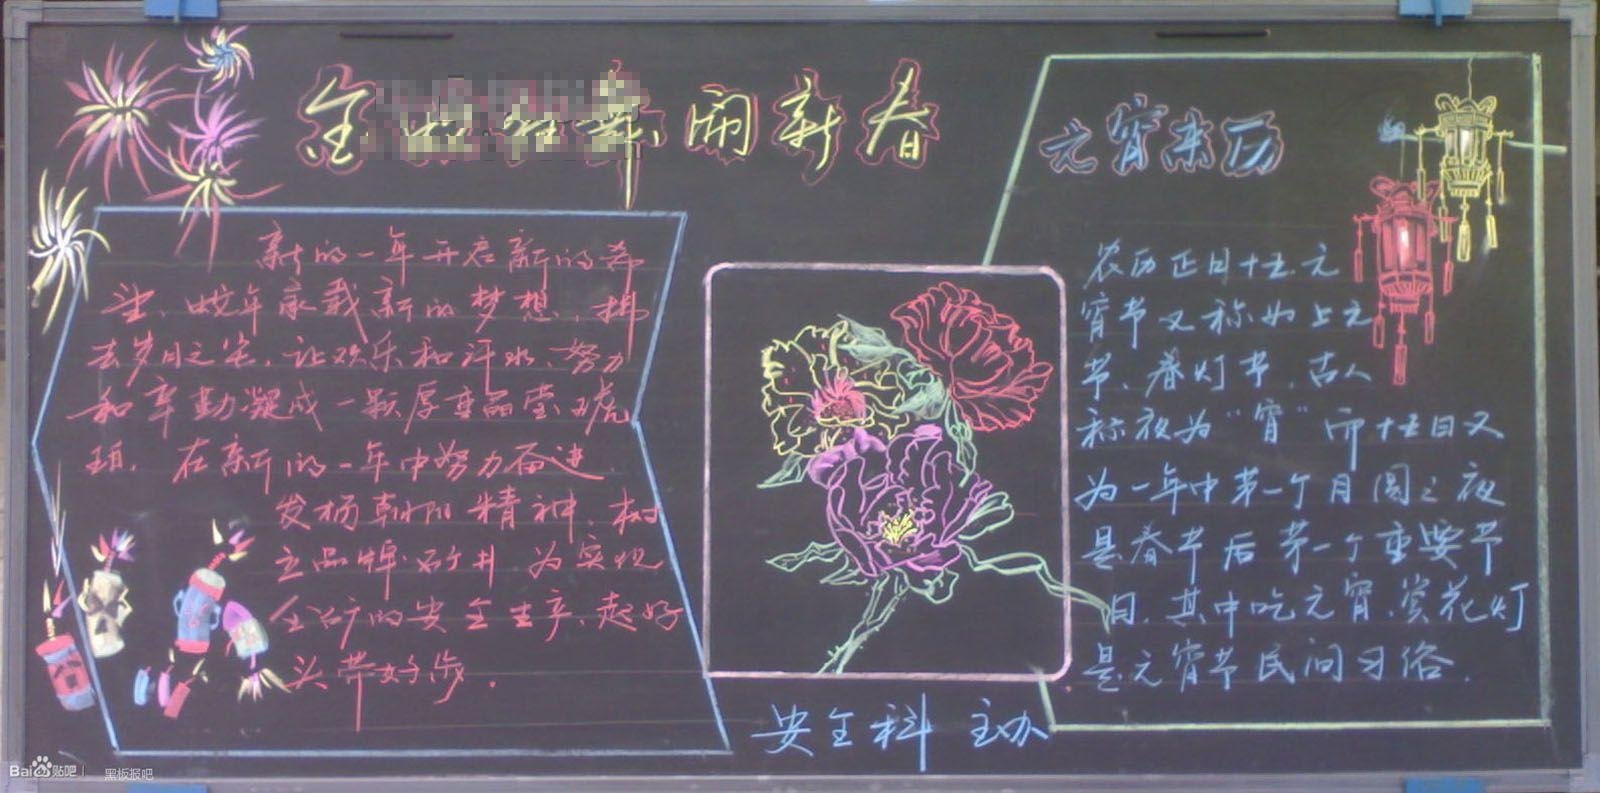 金 闹新春
新的一年开启新的希
望,蛇年承载新的梦想,拂
去岁月之尘,让欢乐和汗水、努力
和辛勤凝成一颗厚重晶莹琥
珀,在新的一年中努力奋进,
发扬朝阳精神、树
立品牌矿井 为实现
矿的安全生产、起好
头带好步.
元宵来历
农历正月十五元
宵节又称为上元
节、春灯节,古人
称夜为"宵"而十五日又
为一年中第一个月圆之夜
是春节后第一个重要节
日,其中吃元宵、赏花灯
是元宵节民间习俗.
安全科 主办
Bai 贴吧 | 黑板报吧